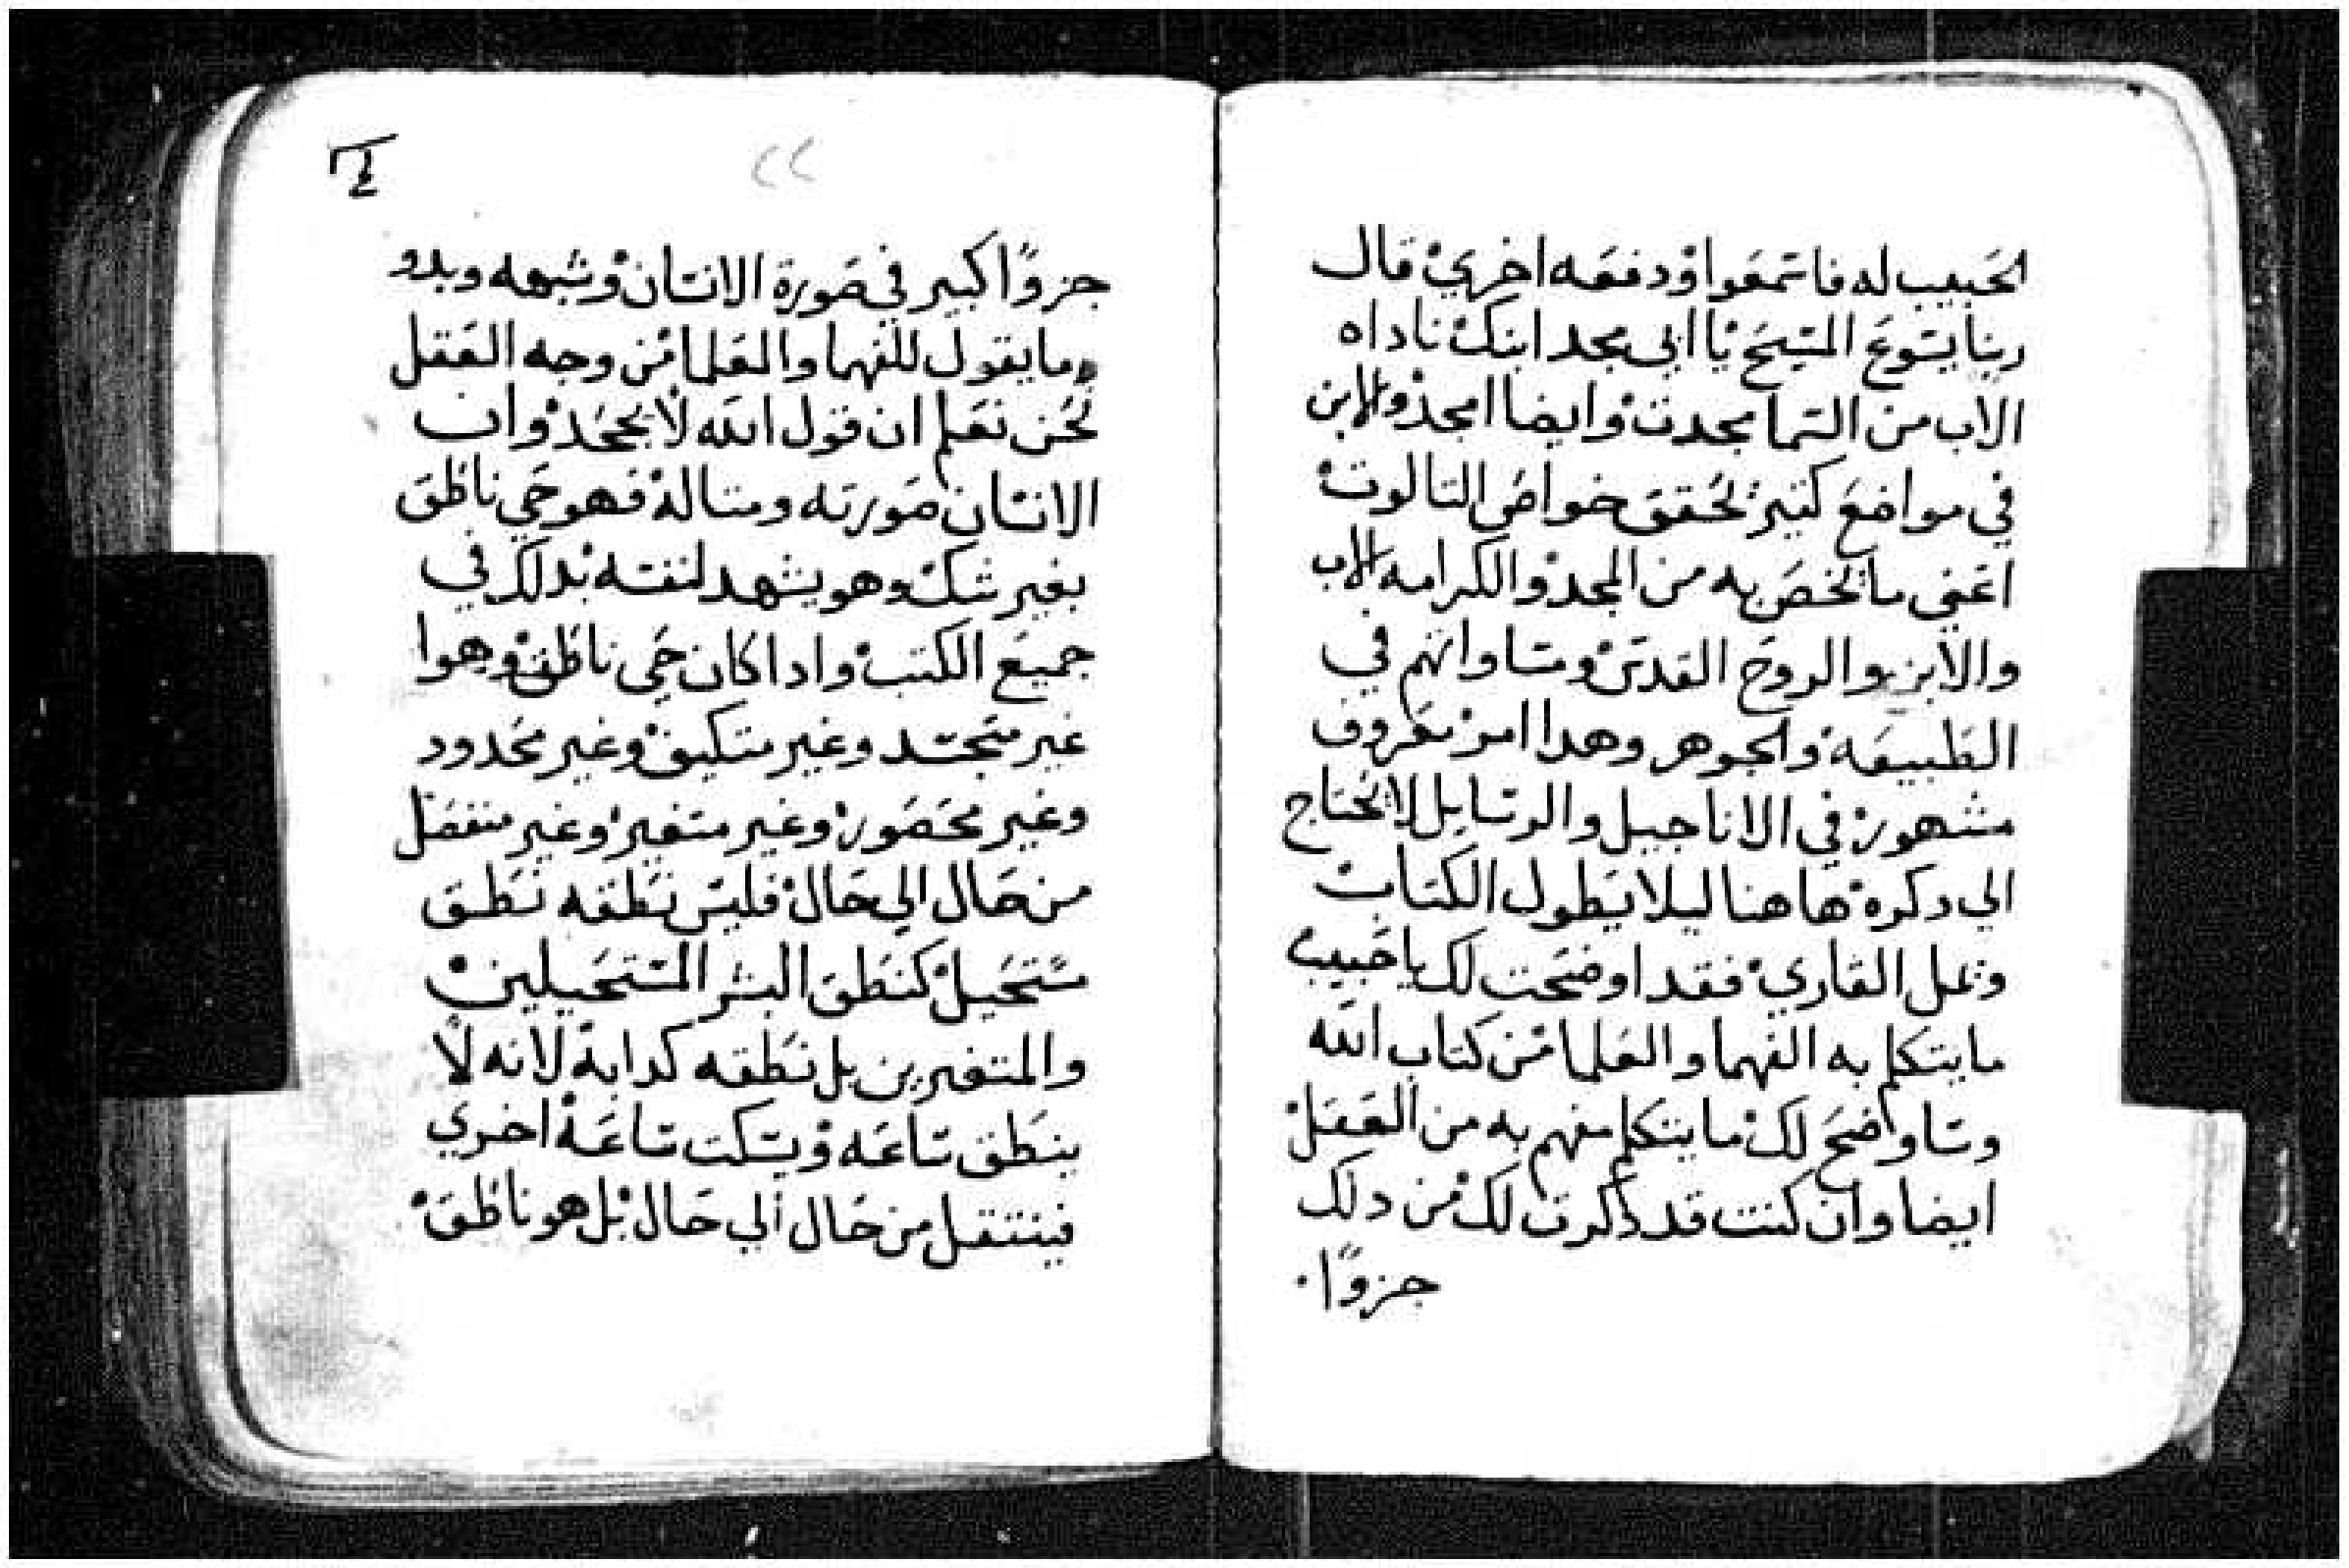 الحبيب له فاسمعوا ودفعه اخري قال
ربنا يسوع المسيح يا ابي مجد ابنك ناداه
الاب من السما مجدت وايضا امجد وللابن
في مواضع كتير تحقق خواص التالوت
اعني ما تخص به من المجد والكرامه للاب
والابن والروح القدس وتساوانهم في
الطبيعه والجوهر وهدا امر معروف
مشهور في الاناجيل والرسايل لا نحتاج
الي دكره هاهنا ليلا يطول الكتاب
وتمل القاري فقد اوضحت لك يا حبيب
ما يتكلم به الفهما والعلما من كتاب الله
وساواضح لك ما يتكلم منهم به من العقل
ايضا وان كنت قد دكرت لك من دلك
جزوًا
٢٢
جزوًا كبير في صورة الانسان وشبهه وبدو
وما يقول للفهما والعلما من وجه العقل
نحن نعلم ان قول الله لا يجحد وان
الانسان صورته ومتاله فهو حي ناطق
بغير شك وهو يشهد لنفسه بدلك في
جميع الكتب وادا كان حي ناطق وهوا
غير متجسد وغير متكيف وغير محدود
وغير محصور وغير متغير وغير منفصل
من حال الي حال فليس نطقه نطق
مستحيل كنطق البشر المستحيلين
والمتغيرين بل نطقه كدابه لانه لا
ينطق ساعه ويسكت ساعة اخري
فينتقل من حال الي حال بل هو ناطق